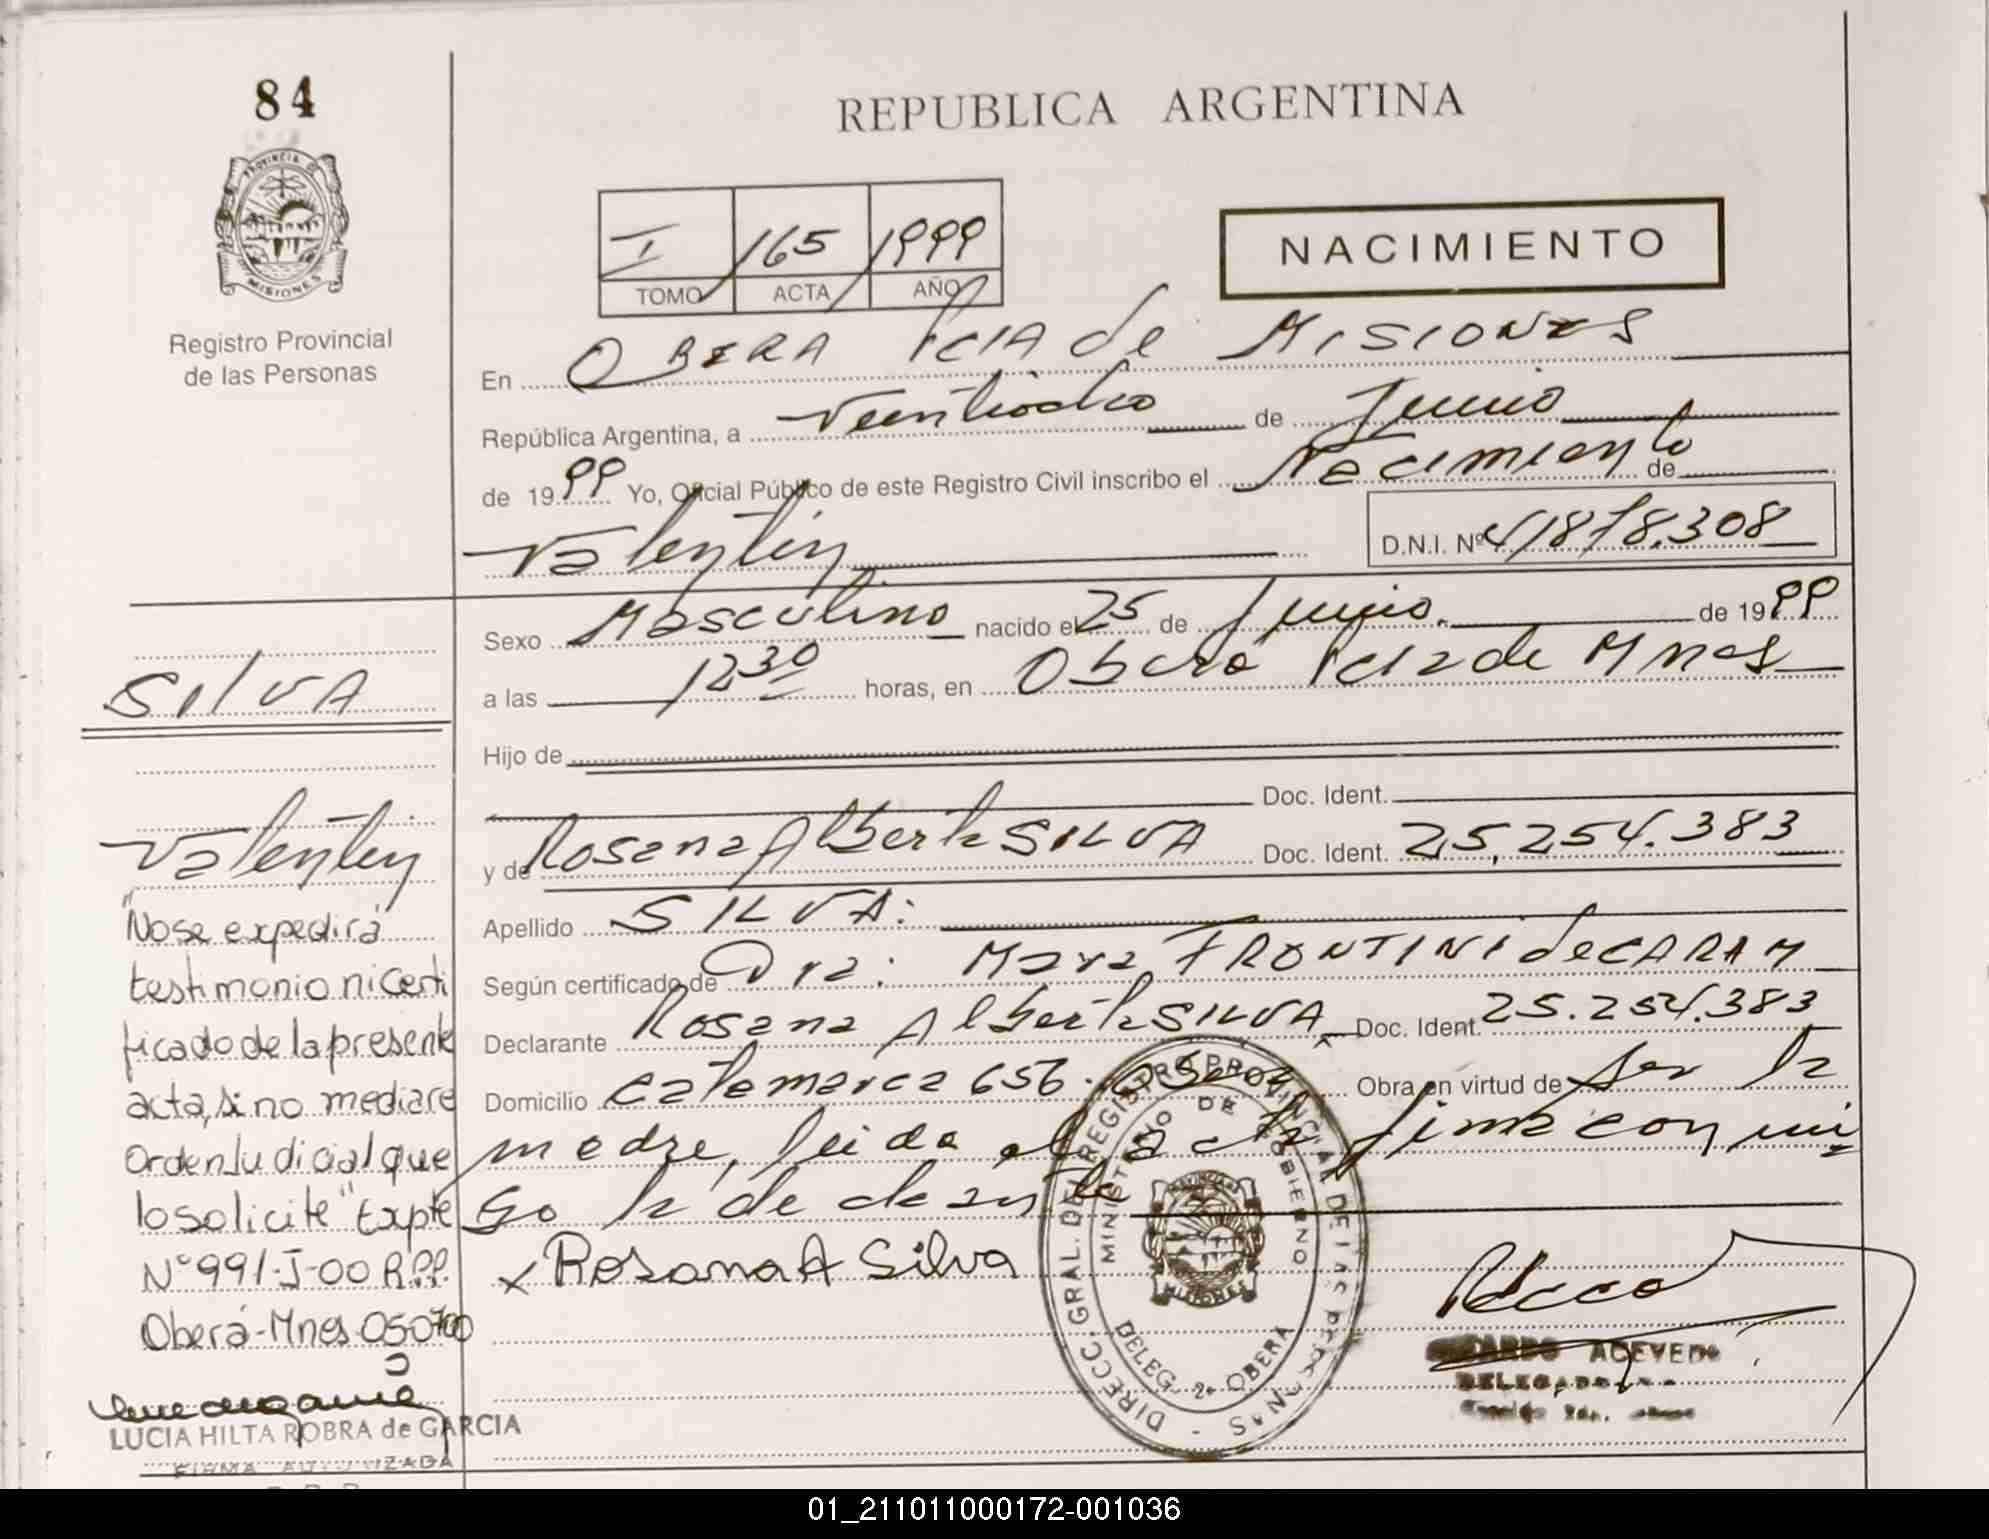 84
PROVINCIA D
MISIONES
Registro Provincial
de las Personas
REPUBLICA ARGENTINA
I 165 1999
TOMO ACTA AÑO
NACIMIENTO
En OBERA Pcia de MISIONES
República Argentina, a Veintiocho de Junio
de 1999 Yo, Oficial Público de este Registro Civil inscribo el Nacimiento de
Valentin D.N.I. Nº 41878.308
Sexo Masculino nacido el 25 de Junio. de 1999
a las 12 30 horas, en Oberá Pcia de Mnes
Hijo de
Doc. Ident.
y de Rosana Alberta SILVA Doc. Ident. 25,254.383
Apellido SILVA:
Según certificado de Dra: Mara FRONTINI de CARAM
Declarante Rosana Alberta SILVA Doc. Ident. 25.254.383
Domicilio Catamarca 656. Obra en virtud de Ser la
madre, leida el acta firma conmi
go la declarante
x Rosana A Silva
SILVA
Valentin
"No se expedirá
testimonio ni certi
ficado de la presente
acta, si no mediare
Orden Judicial que
lo solicite" Expte
N° 991-J-00 R.P.P.
Oberá-Mnes 050700
LUCIA HILTA ROBRA de GARCIA
FIRMA AUTORIZADA
DIRECC. GRAL. DEL REGISTRO PROVINCIAL DE LAS PERSONAS
MINISTERIO DE GOBIERNO
MISIONES
DELEG. 2a OBERA
ACEVEDO
DELEGADO
01_211011000172-001036